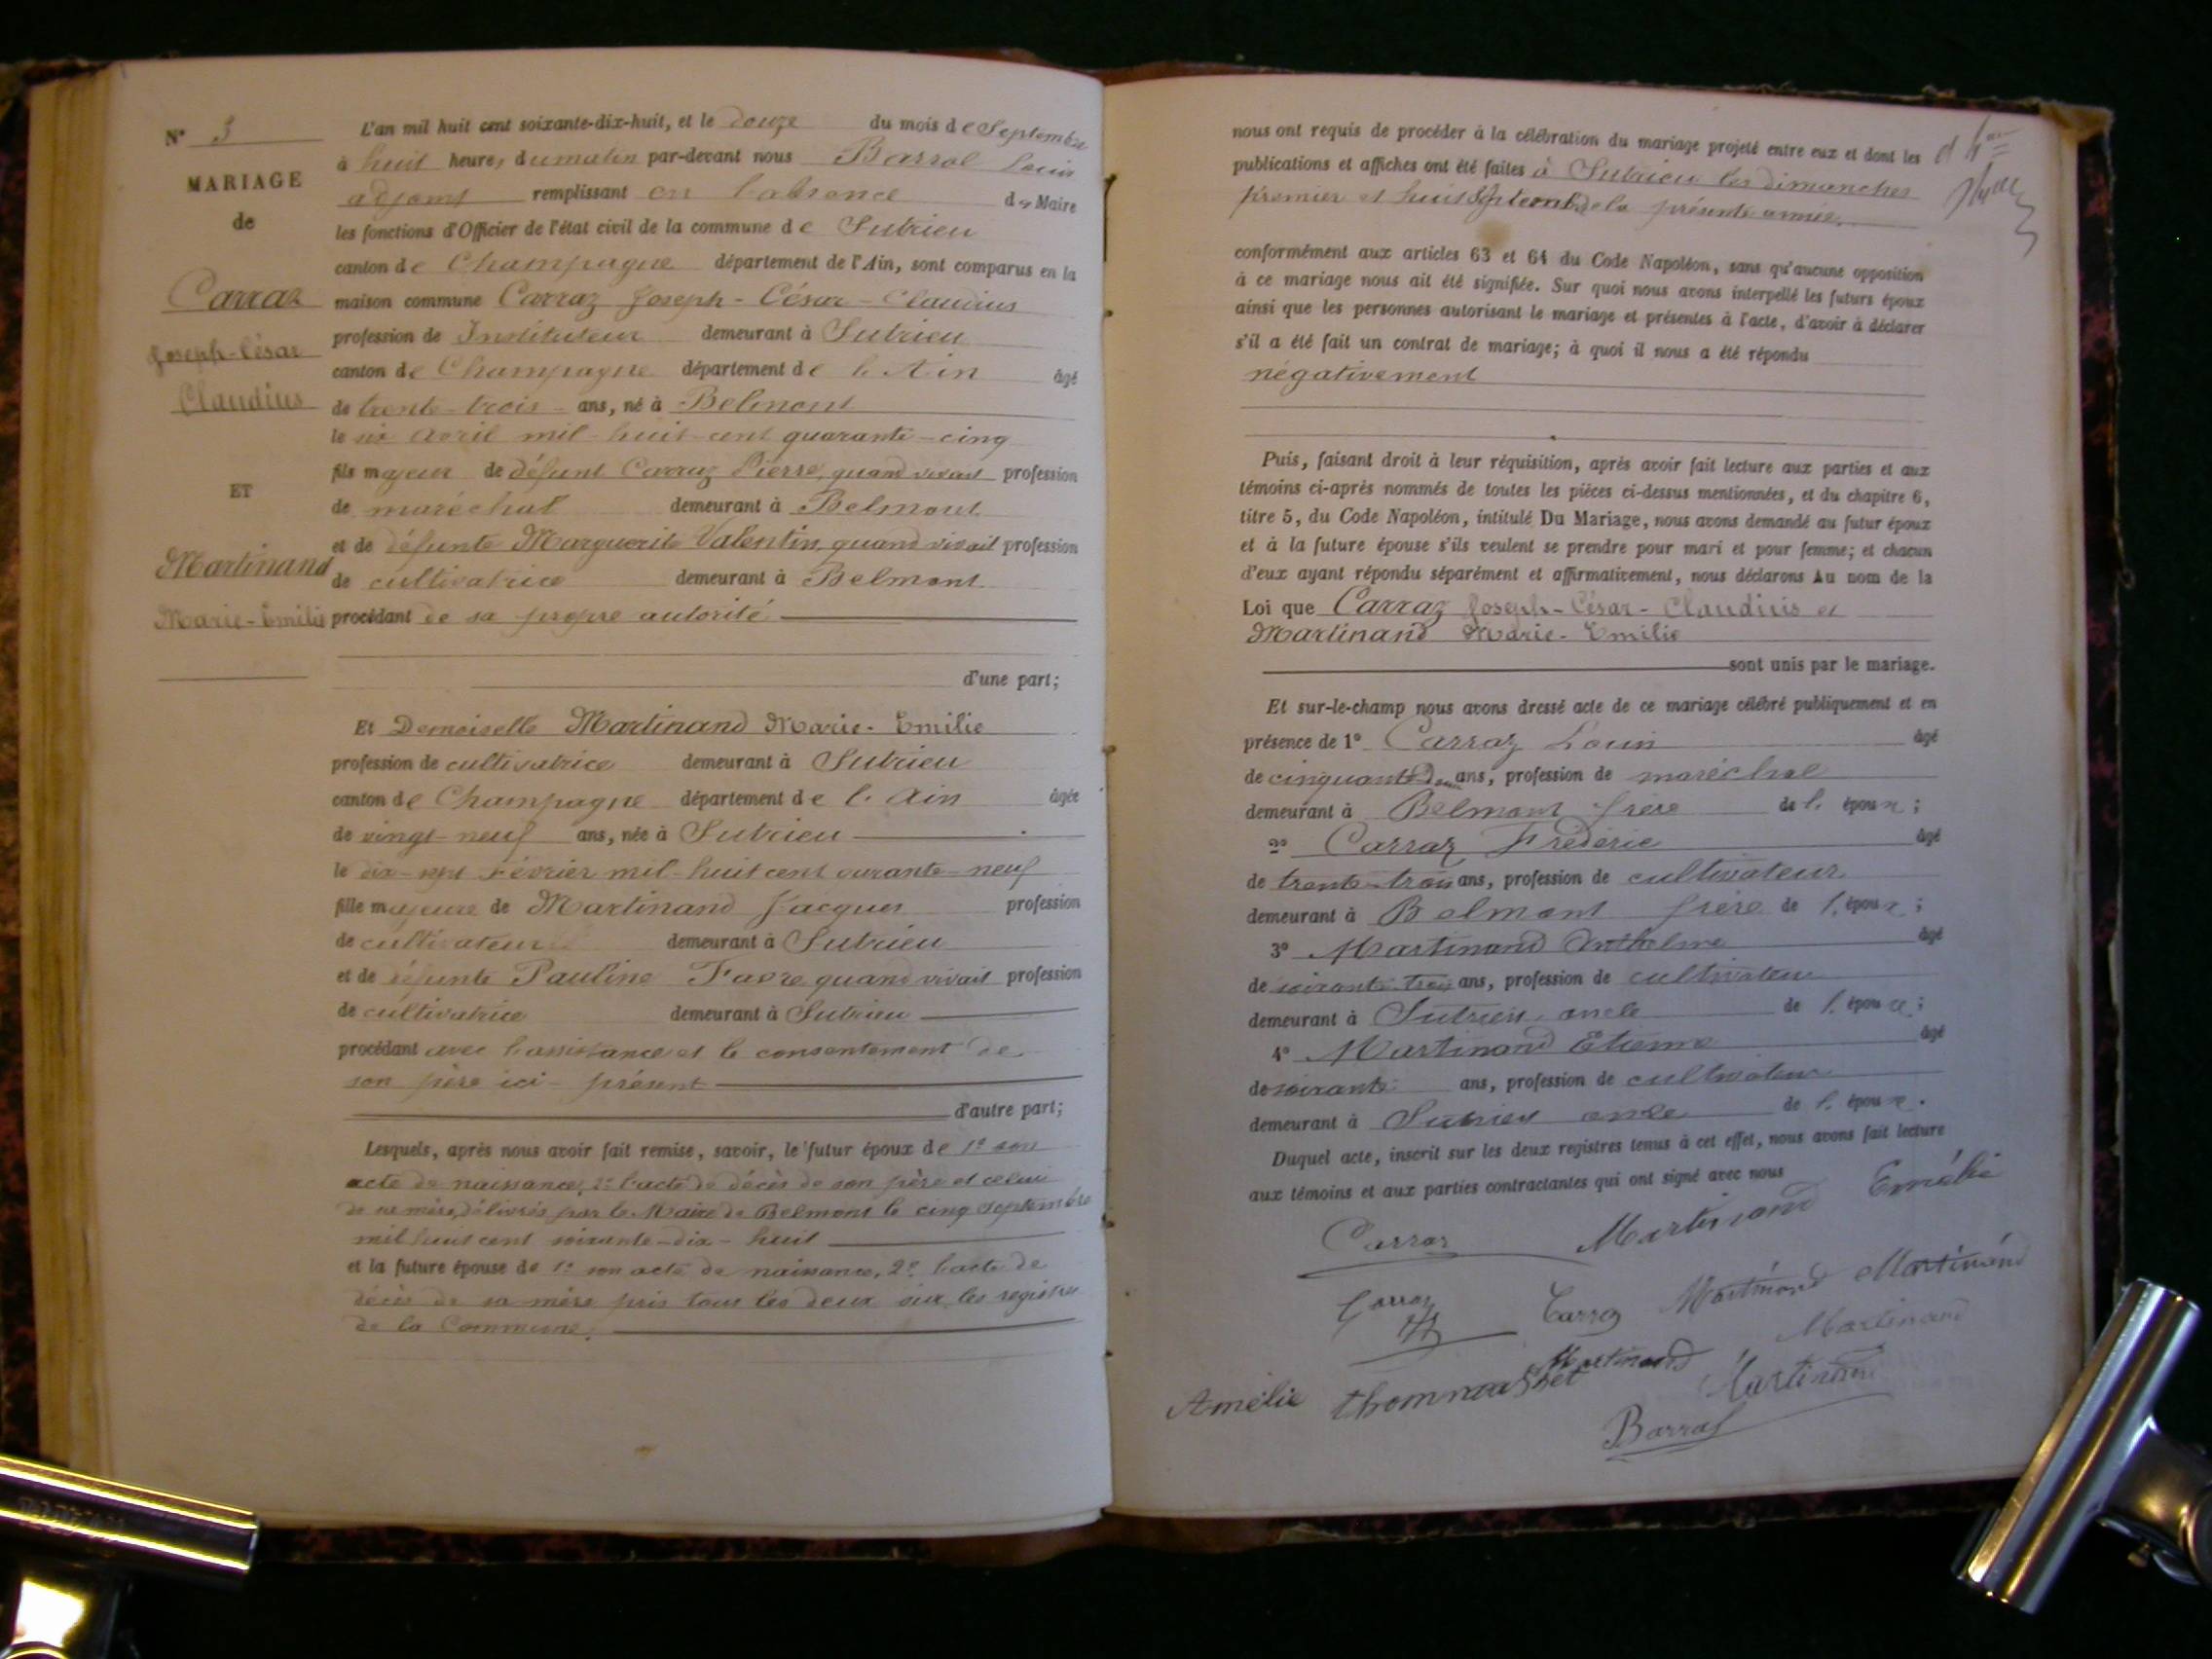 N° 3
MARIAGE
de
Carraz
Joseph-César
Claudius
ET
Martinand
Marie-Emilie
L'an mil huit cent soixante-dix-huit, et le douze du mois de Septembre
à huit heures du matin par-devant nous Barral Louis
adjoint remplissant en l'absence du Maire
les fonctions d'Officier de l'état civil de la commune de Sutrieu
canton de Champagne département de l'Ain, sont comparus en la
maison commune Carraz Joseph-César-Claudius
profession de Instituteur demeurant à Sutrieu
canton de Champagne département de l'Ain âgé
de trente-trois ans, né à Belmont
le six Avril mil-huit-cent quarante-cinq
fils majeur de défunt Carraz Pierre, quand vivait profession
de maréchal demeurant à Belmont
et de défunte Marguerite Valentin, quand vivait profession
de cultivatrice demeurant à Belmont
procédant de sa propre autorité
d'une part;
Et Demoiselle Martinand Marie-Emilie
profession de cultivatrice demeurant à Sutrieu
canton de Champagne département de l'Ain âgée
de vingt-neuf ans, née à Sutrieu
le dix-sept Février mil-huit cent quarante-neuf
fille majeure de Martinand Jacques profession
de cultivateur demeurant à Sutrieu
et de défunte Pauline Favre quand vivait profession
de cultivatrice demeurant à Sutrieu
procédant avec l'assistance et le consentement de
son père ici-présent
d'autre part;
Lesquels, après nous avoir fait remise, savoir, le futur époux de 1° son
acte de naissance, 2° l'acte de décès de son père et celui
de sa mère, délivrés par le Maire de Belmont le cinq septembre
mil huit cent soixante-dix-huit
et la future épouse de 1° son acte de naissance, 2° l'acte de
décès de sa mère pris tous les deux sur les registres
de la Commune.
nous ont requis de procéder à la célébration du mariage projeté entre eux et dont les
publications et affiches ont été faites à Sutrieu les dimanches
premier et huit Septembre de la présente année.
conformément aux articles 63 et 64 du Code Napoléon, sans qu'aucune opposition
à ce mariage nous ait été signifiée. Sur quoi nous avons interpellé les futurs époux
ainsi que les personnes autorisant le mariage et présentes à l'acte, d'avoir à déclarer
s'il a été fait un contrat de mariage; à quoi il nous a été répondu
négativement
Puis, faisant droit à leur réquisition, après avoir fait lecture aux parties et aux
témoins ci-après nommés de toutes les pièces ci-dessus mentionnées, et du chapitre 6,
titre 5, du Code Napoléon, intitulé Du Mariage, nous avons demandé au futur époux
et à la future épouse s'ils veulent se prendre pour mari et pour femme; et chacun
d'eux ayant répondu séparément et affirmativement, nous déclarons Au nom de la
Loi que Carraz Joseph-César-Claudius et
Martinand Marie-Emilie
sont unis par le mariage.
Et sur-le-champ nous avons dressé acte de ce mariage célébré publiquement et en
présence de 1° Carraz Louis âgé
de cinquante ans, profession de maréchal
demeurant à Belmont frère de l'époux;
2° Carraz Frédéric âgé
de trente-trois ans, profession de cultivateur
demeurant à Belmont frère de l'époux;
3° Martinand Anthelme âgé
de soixante-trois ans, profession de cultivateur
demeurant à Sutrieu oncle de l'épouse;
4° Martinand Etienne âgé
de soixante ans, profession de cultivateur
demeurant à Sutrieu oncle de l'épouse.
Duquel acte, inscrit sur les deux registres tenus à cet effet, nous avons fait lecture
aux témoins et aux parties contractantes qui ont signé avec nous
Carraz Martinand Emélie
Carraz Carraz Martinand Martinand
Martinand Martinand
Amélie thommasset Martinand
Barral